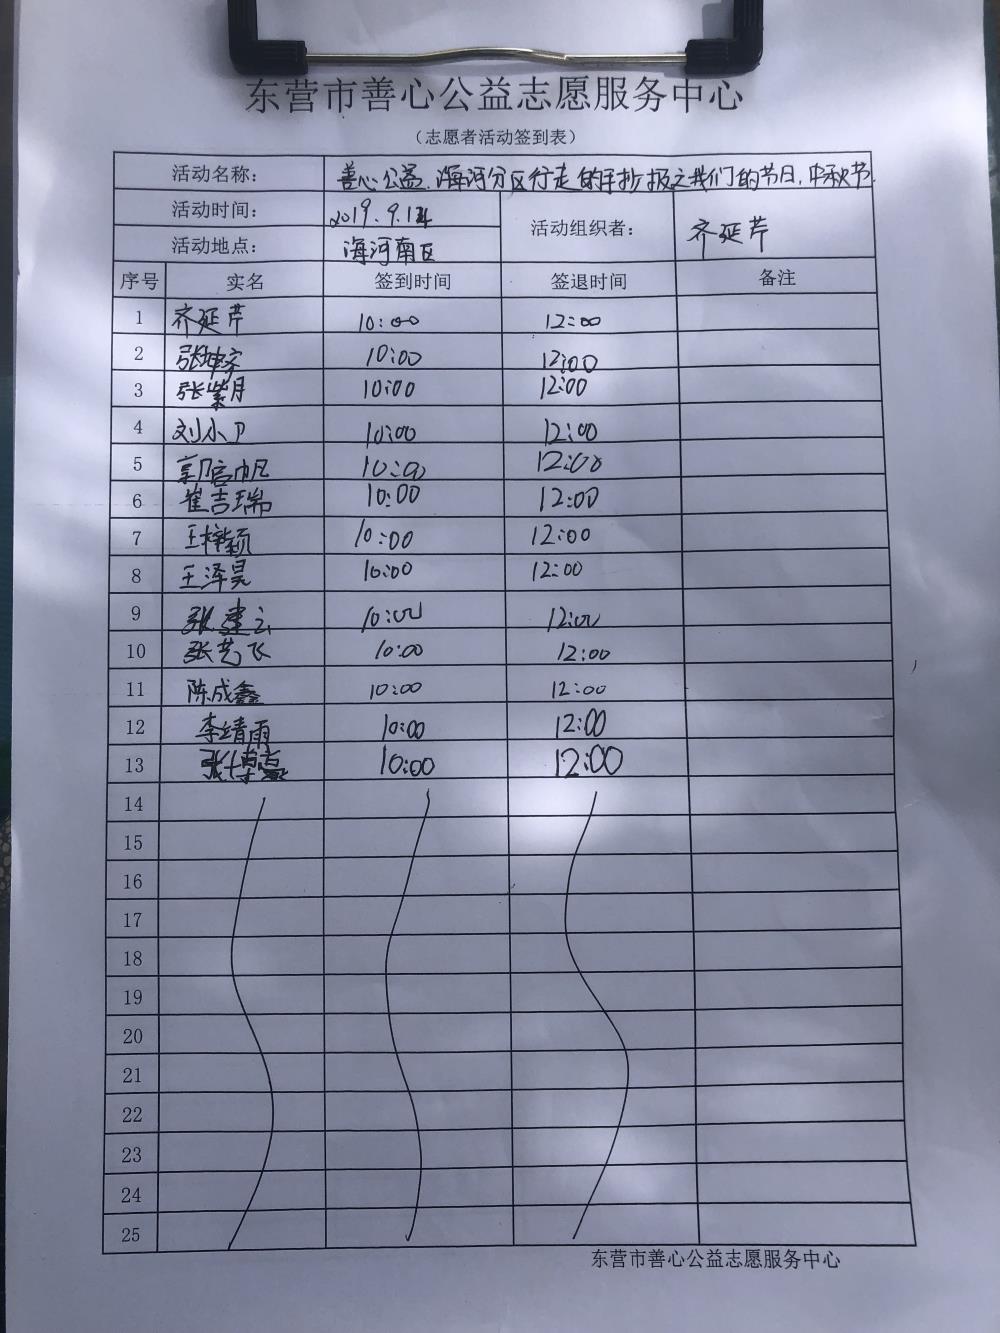 东营市善心公益志愿服务中心
（志愿者活动签到表）
活动名称： 善心公益.海河分区行走的手抄报之我们的节日，中秋节.
活动时间： 2019.9.1 活动组织者： 齐延芹
活动地点： 海河南区
序号 实名 签到时间 签退时间 备注
1 齐延芹 10:00 12:00
2 张坤 10:00 12:00
3 张紫月 10:00 12:00
4 刘小 10:00 12:00
5 郭宫帆 10:00 12:00
6 崔吉瑞 10:00 12:00
7 王梓颖 10:00 12:00
8 王泽昊 10:00 12:00
9 张建云 10:00 12:00
10 张艺飞 10:00 12:00
11 陈成鑫 10:00 12:00
12 李靖雨 10:00 12:00
13 张博 10:00 12:00
14
15
16
17
18
19
20
21
22
23
24
25
东营市善心公益志愿服务中心